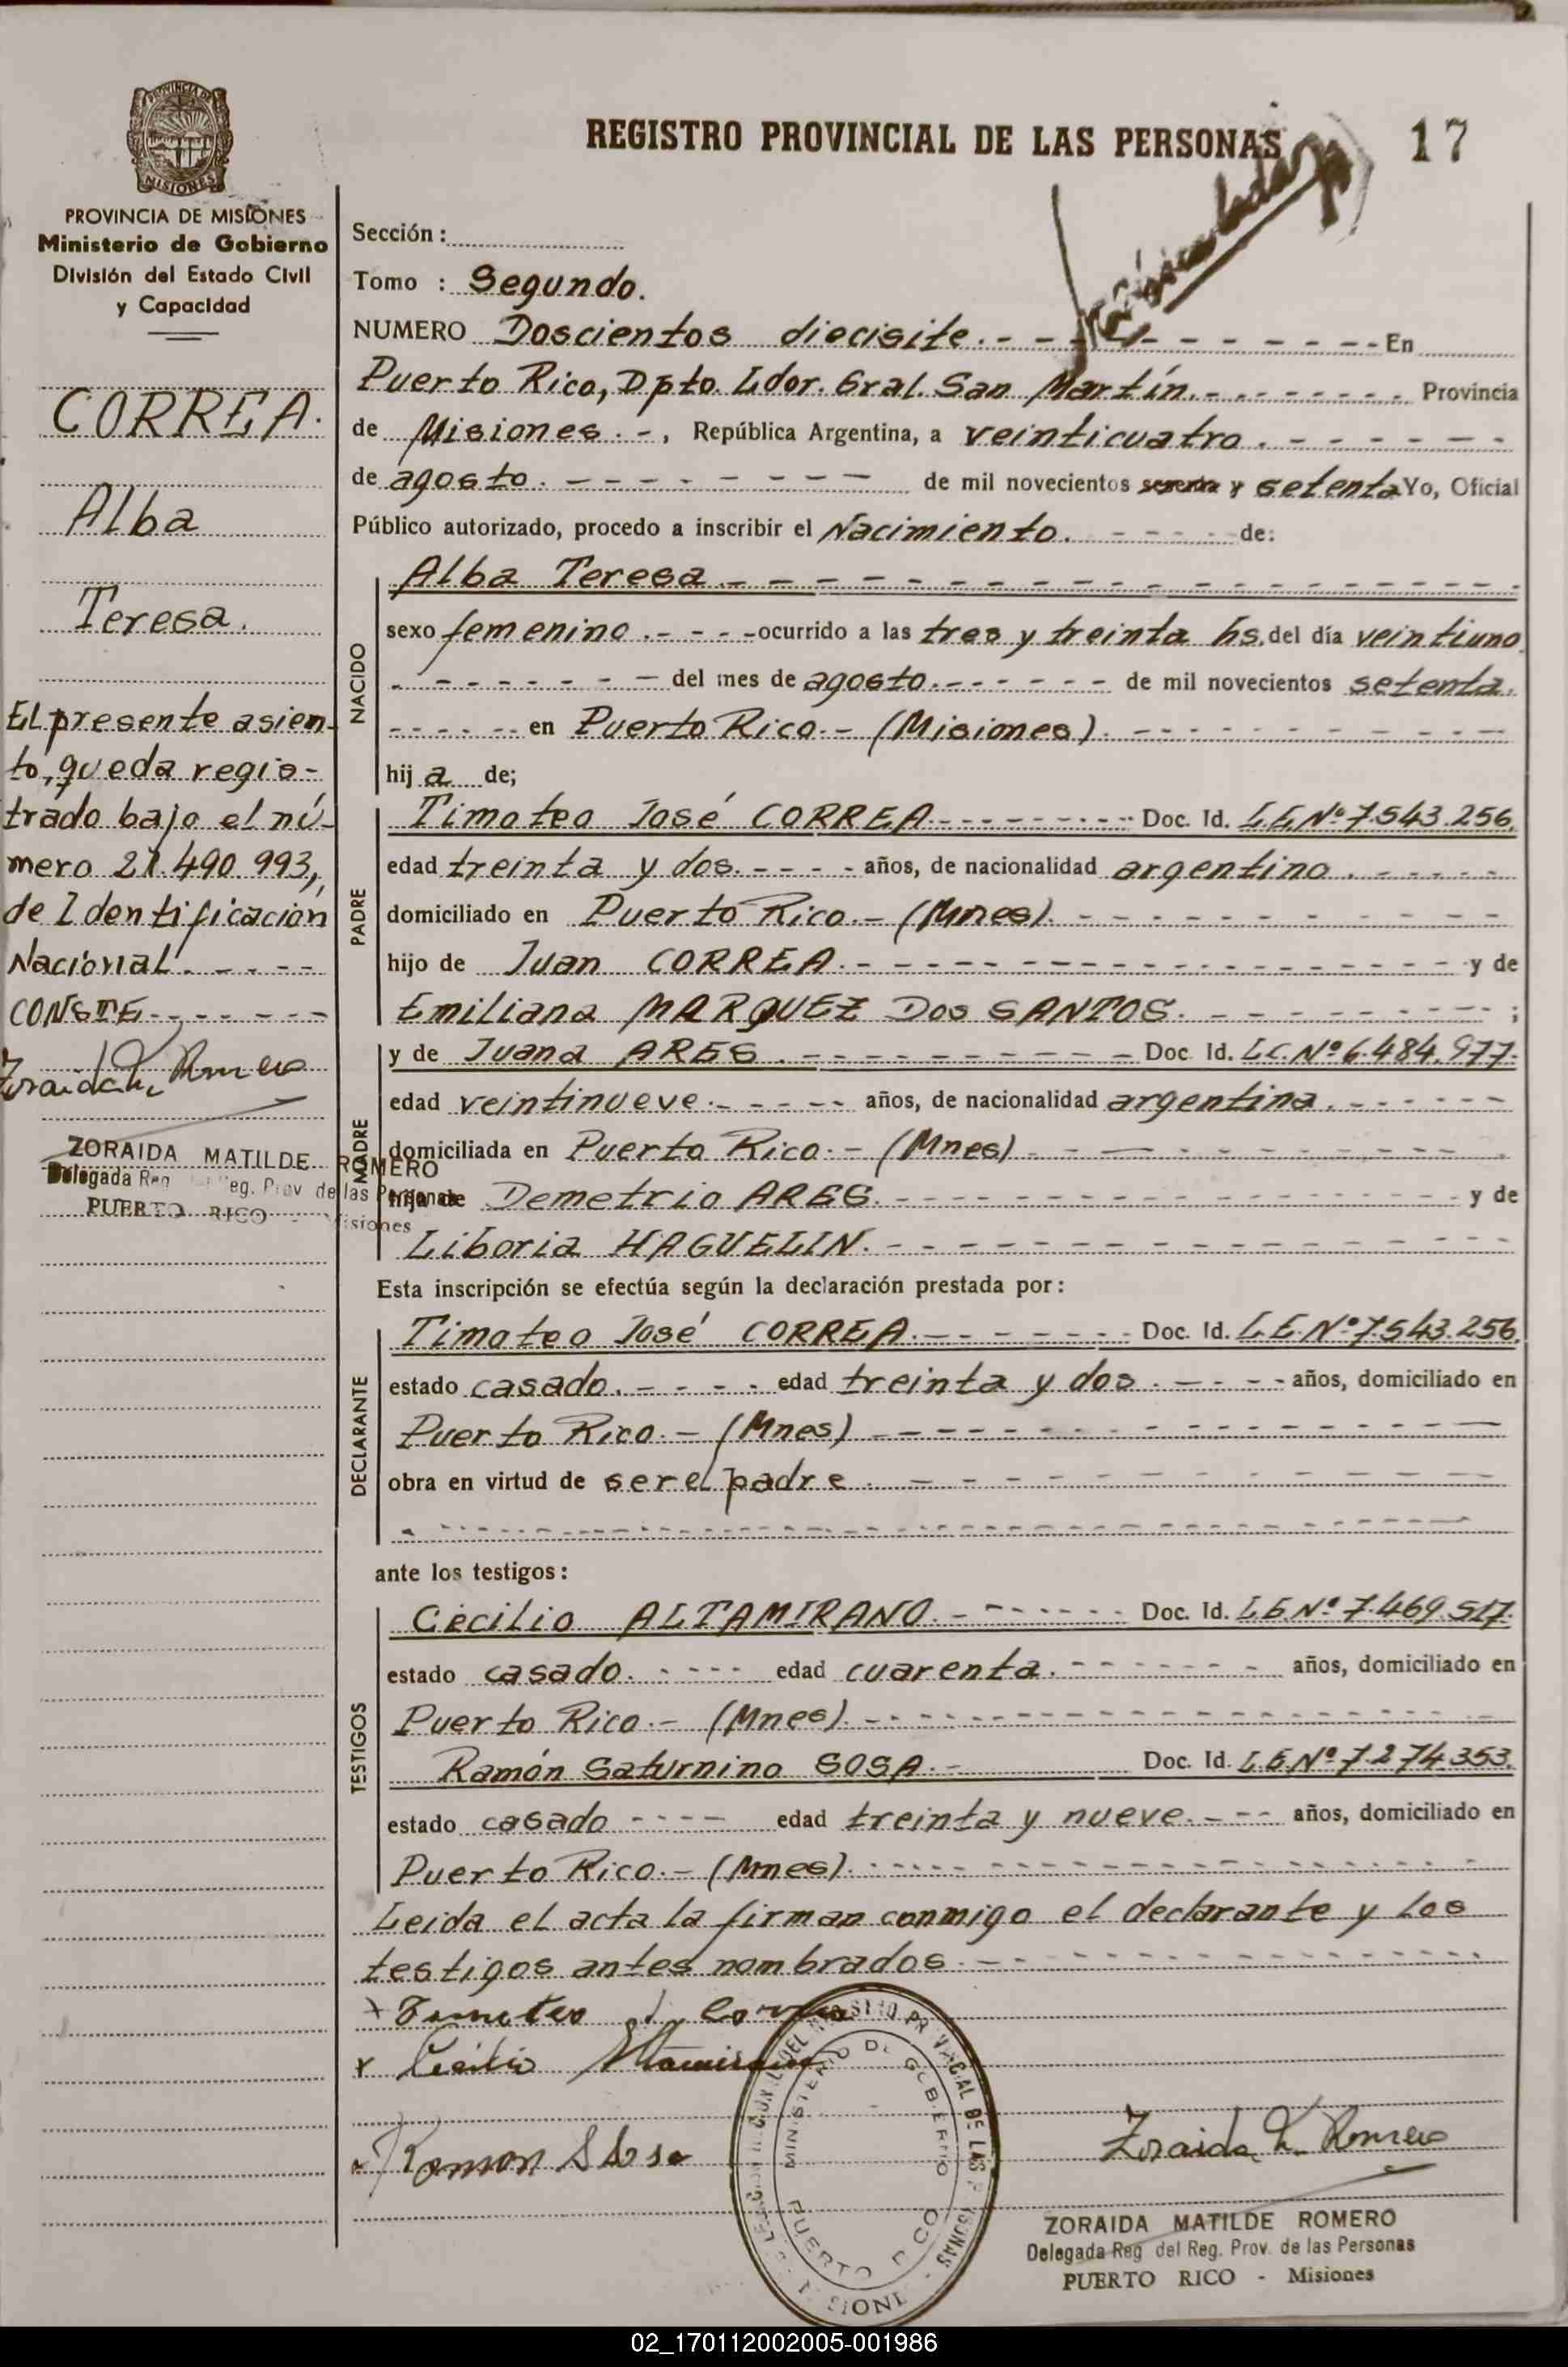 REGISTRO PROVINCIAL DE LAS PERSONAS
17
PROVINCIA DE MISIONES
PROVINCIA DE MISIONES
Ministerio de Gobierno
División del Estado Civil
y Capacidad
CORREA.
Alba
Teresa.
El presente asien-
to, queda regis-
trado bajo el nú-
mero 21.490.993,
de Identificación
Nacional. - - - -
CONSTE - - - - - -
Zoraida M. Romero
ZORAIDA MATILDE ROMERO
Delegada Reg. Prov de las Personas
PUERTO RICO - Misiones
Sección :
Tomo : Segundo.
NUMERO Doscientos diecisite. - - - - - - - - - En
Puerto Rico, Dpto. Ldor. Gral. San Martín. - - - - - - - Provincia
de Misiones. -, República Argentina, a veinticuatro. - - - - - -
de agosto. - - - - - - - - de mil novecientos sesenta y setenta Yo, Oficial
Público autorizado, procedo a inscribir el Nacimiento. - - - - - de:
NACIDO
Alba Teresa. - - - - - - - - - - - - - - - - - -
sexo femenino. - - - - ocurrido a las tres y treinta hs. del día veintiuno
- - - - - - - - del mes de agosto. - - - - - - de mil novecientos setenta.
- - - - - - en Puerto Rico. - (Misiones). - - - - - - - - - -
hij a de;
PADRE
Timoteo José CORREA. - - - - - - - - - Doc. Id. L.E. Nº 7.543.256.
edad treinta y dos. - - - - años, de nacionalidad argentino. - - - - -
domiciliado en Puerto Rico. - (Mnes). - - - - - - - - - - -
hijo de Juan CORREA. - - - - - - - - - - - - - - - - - y de
Emiliana MARQUEZ Dos SANTOS. - - - - - - - - ;
MADRE
y de Juana ARES. - - - - - - - - - Doc. Id. L.C. Nº 6.484.977.
edad veintinueve. - - - - - años, de nacionalidad argentina. - - - - - -
domiciliada en Puerto Rico. - (Mnes) - - - - - - - - - -
hija de Demetrio ARES. - - - - - - - - - - - - - - - - y de
Liboria HAGUELIN. - - - - - - - - - - - - - - -
Esta inscripción se efectúa según la declaración prestada por :
DECLARANTE
Timoteo José CORREA. - - - - - - - Doc. Id. L.E. Nº 7.543.256.
estado casado. - - - - edad treinta y dos. - - - - años, domiciliado en
Puerto Rico. - (Mnes) - - - - - - - - - - - - - - -
obra en virtud de ser el padre. - - - - - - - - - - - -
ante los testigos :
TESTIGOS
Cecilio ALTAMIRANO. - - - - - - Doc. Id. L.E. Nº 7.469.517.
estado casado. - - - - edad cuarenta. - - - - - - - años, domiciliado en
Puerto Rico. - (Mnes). - - - - - - - - - - - - - - - -
Ramón Saturnino SOSA. - Doc. Id. L.E. Nº 7.274.353.
estado casado - - - - edad treinta y nueve. - - - años, domiciliado en
Puerto Rico. - (Mnes). - - - - - - - - - - - - - - - -
Leida el acta la firman conmigo el declarante y los
testigos antes nombrados. - - - - - - - - - - - - -
x Timoteo J. Correa
x Cecilio Altamirano
x Ramon S Sosa
Zoraida M. Romero
MINISTERIO DE GOBIERNO
PUERTO RICO
ZORAIDA MATILDE ROMERO
Delegada Reg del Reg. Prov. de las Personas
PUERTO RICO - Misiones
02_170112002005-001986